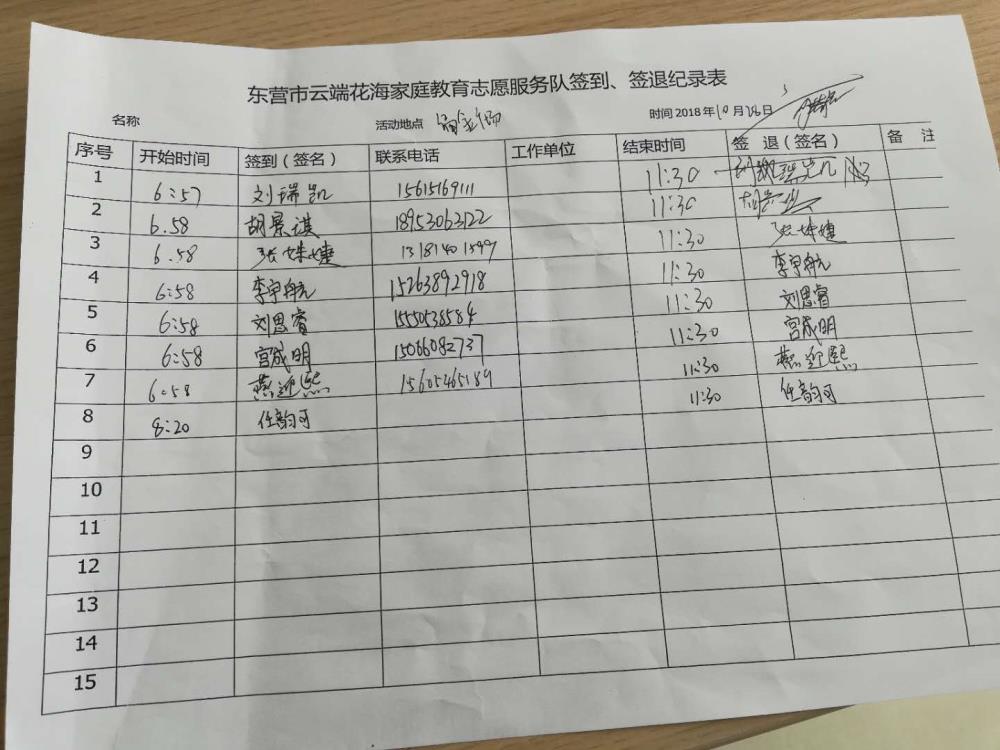 东营市云端花海家庭教育志愿服务队签到、签退纪录表
名称 活动地点 时间 2018 年 10 月 日
序号 开始时间 签到（签名） 联系电话 工作单位 结束时间 签 退（签名） 备 注
1 6:57 刘瑞凯 15615169111 11:30
2 6.58 胡景琪 18953063122 11:30
3 6.58 张姝婕 13181401599 11:30 张姝婕
4 6:58 李宇航 15263892918 11:30 李宇航
5 6:58 刘思睿 15550538584 11:30 刘思睿
6 6:58 宫成明 15066082737 11:30 宫成明
7 6:58 燕迎熙 15605465189 11:30 燕迎熙
8 8:20 任韵可 11:30 任韵可
9
10
11
12
13
14
15